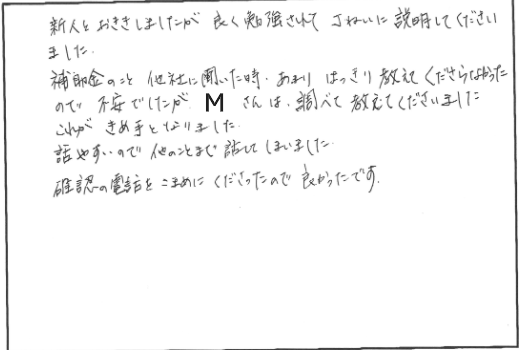 新人とおききしましたが 良く勉強されて ていねいに説明してください
ました.
補助金のこと 他社に聞いた時. あまり はっきり教えてくださらなかった
ので 不安でしたが M さんは、調べて教えてくださいました
これが きめ手となりました.
話やすいので 他のことまで話してしまいました.
確認の電話を こまめに くださったので 良かったです.